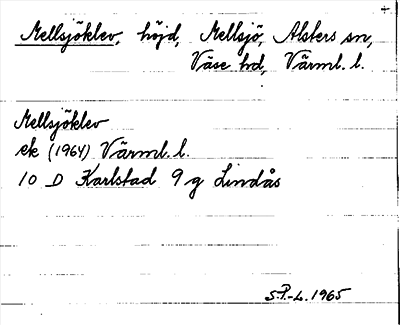 Mellsjöklev, höjd, Mellsjö, Alsters sn,
Väse hd, Värml. l.
Mellsjöklev
ek (1964) Värml. l.
10 D Karlstad 9 g Lindås
S.P.-L. 1965